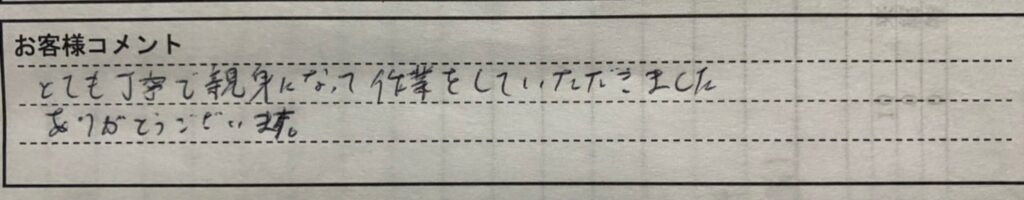 お客様コメント
とても丁寧で親身になって作業をしていただきました
ありがとうございます。